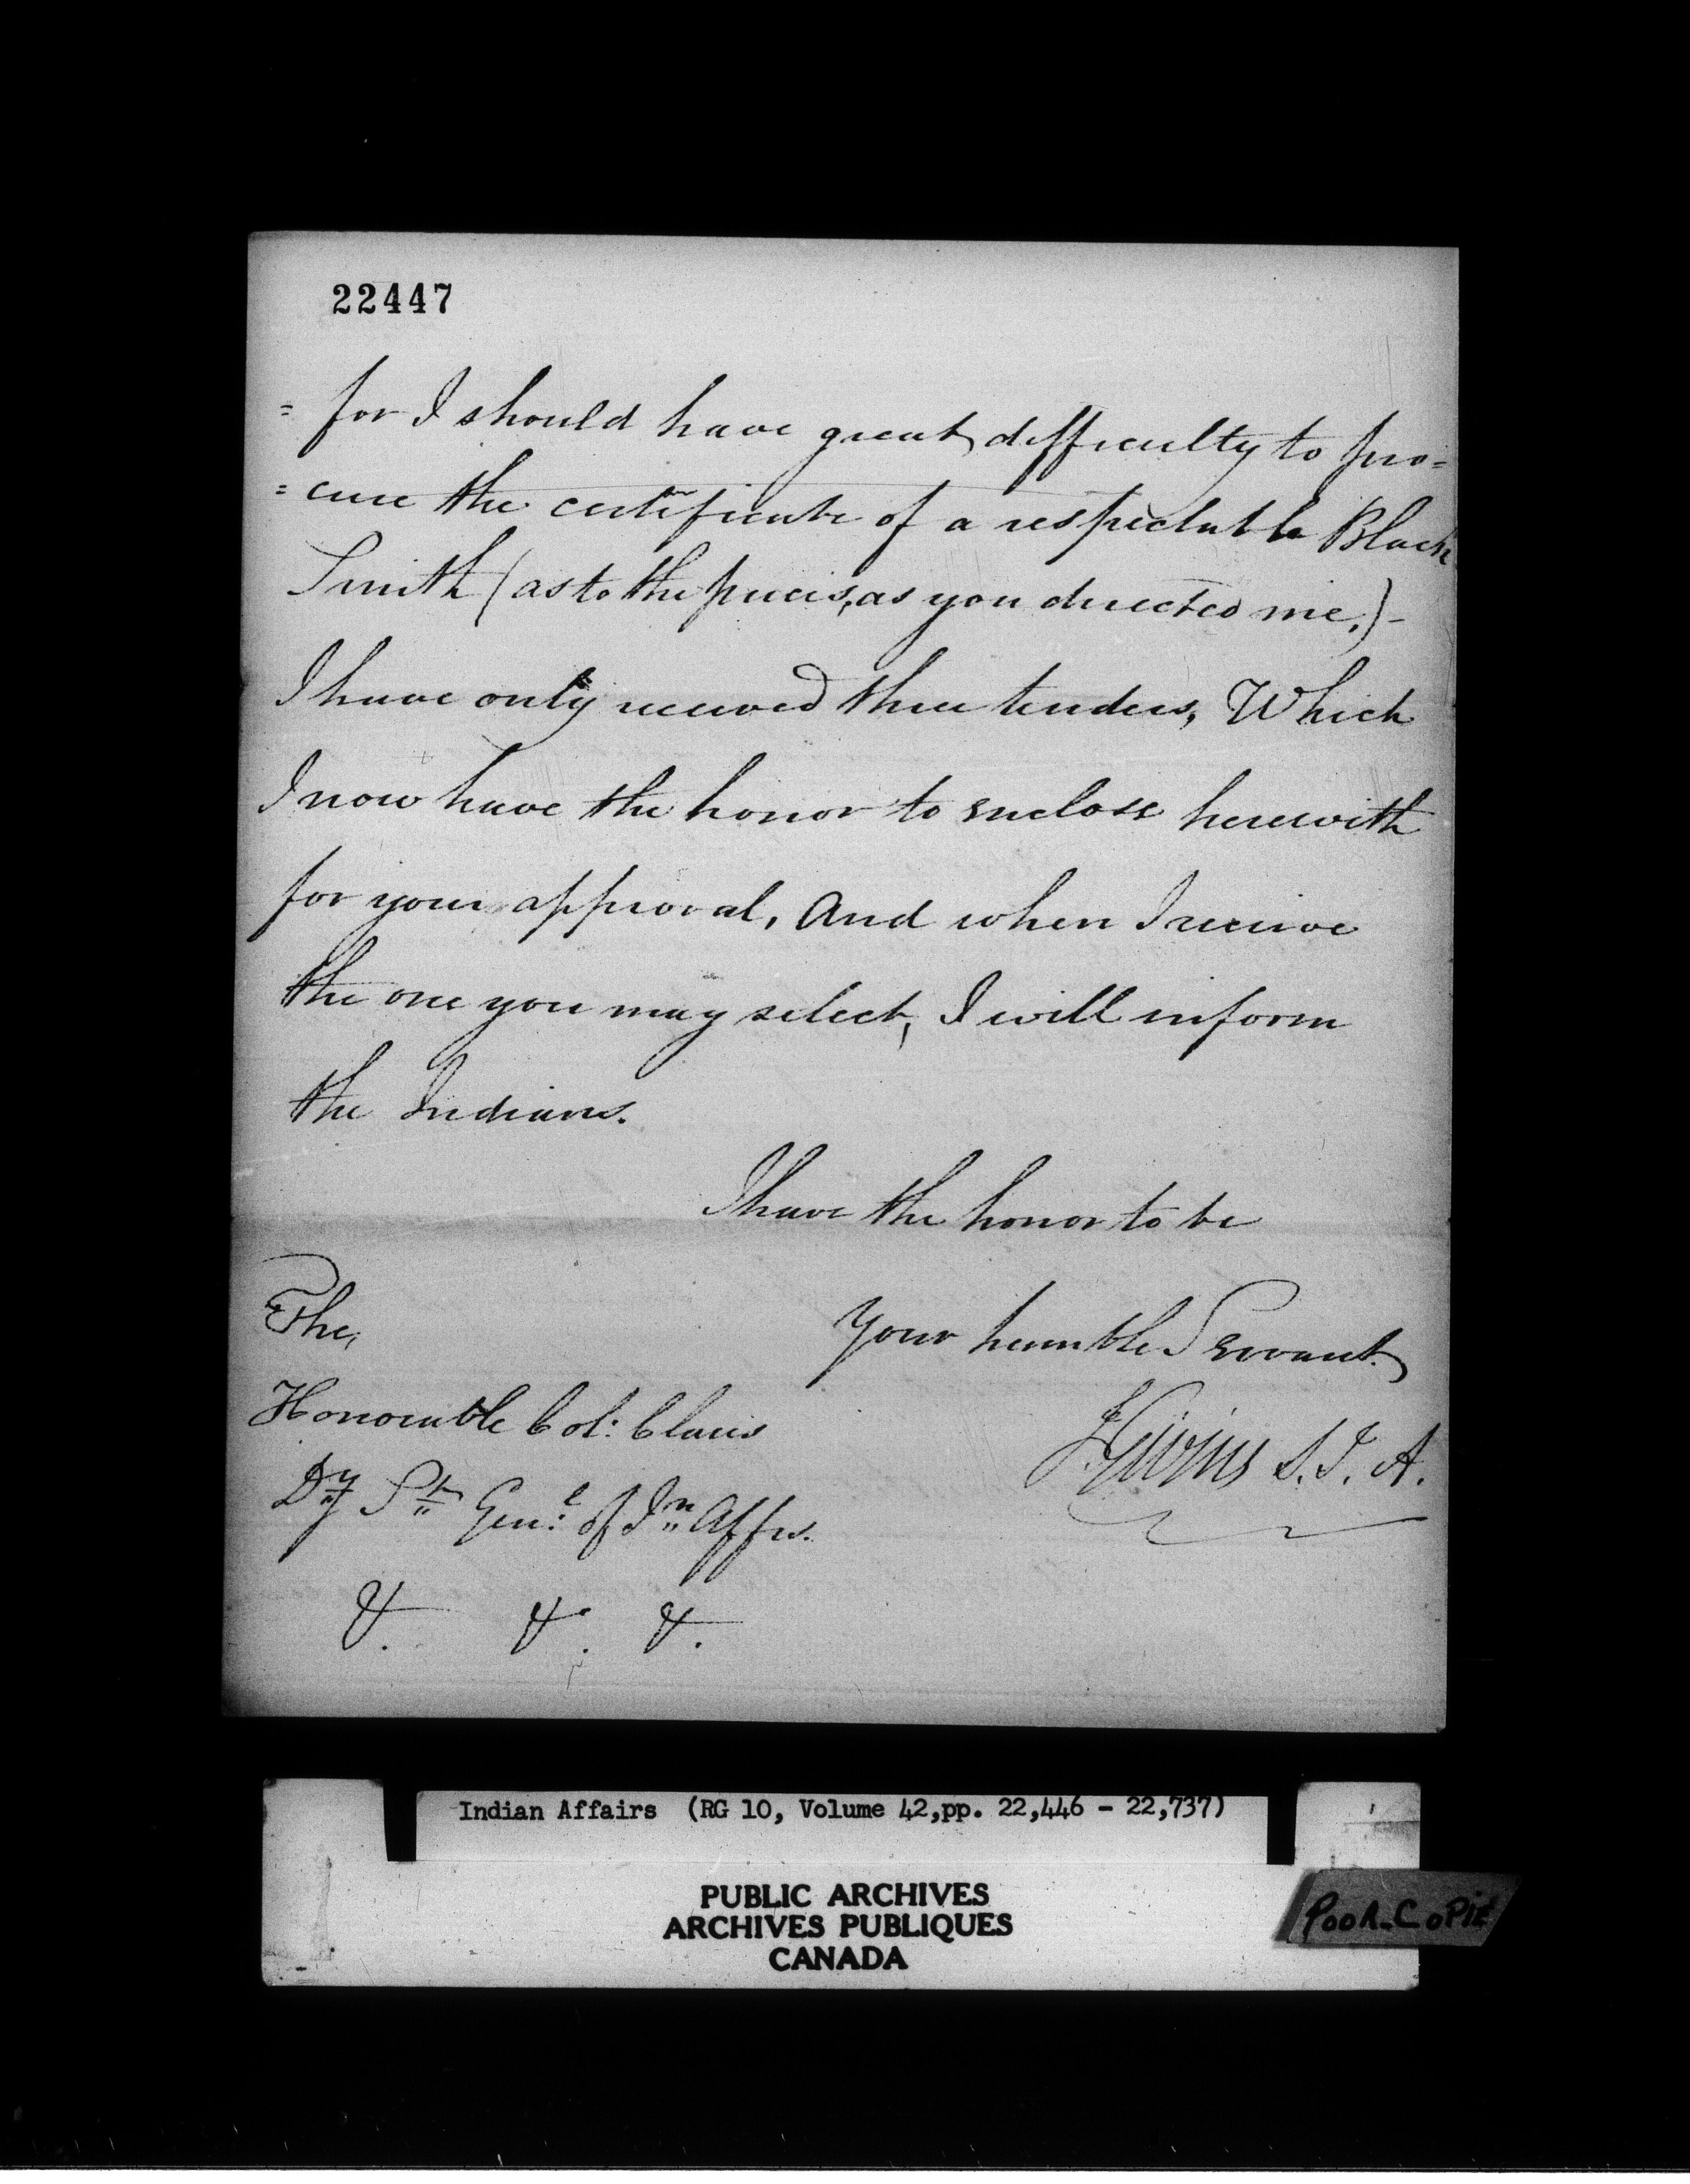 22447
= for I should have great difficulty to pro=
= cure the certificate of a respectable Black
Smith (as to the prices, as you directed me.) -
I have only received three tenders, Which
I now have the honor to enclose herewith
for your approval, And when I receive
the one you may select, I will inform
the Indians.
I have the honor to be
Your humble Servant
J Givins S. I. A.
The,
Honorable Col: Claus
Dy St Genl of In Affrs.
&. &. &.
Indian Affairs (RG 10, Volume 42, pp. 22,446 - 22,737)
PUBLIC ARCHIVES
ARCHIVES PUBLIQUES
CANADA
POOR COPIE